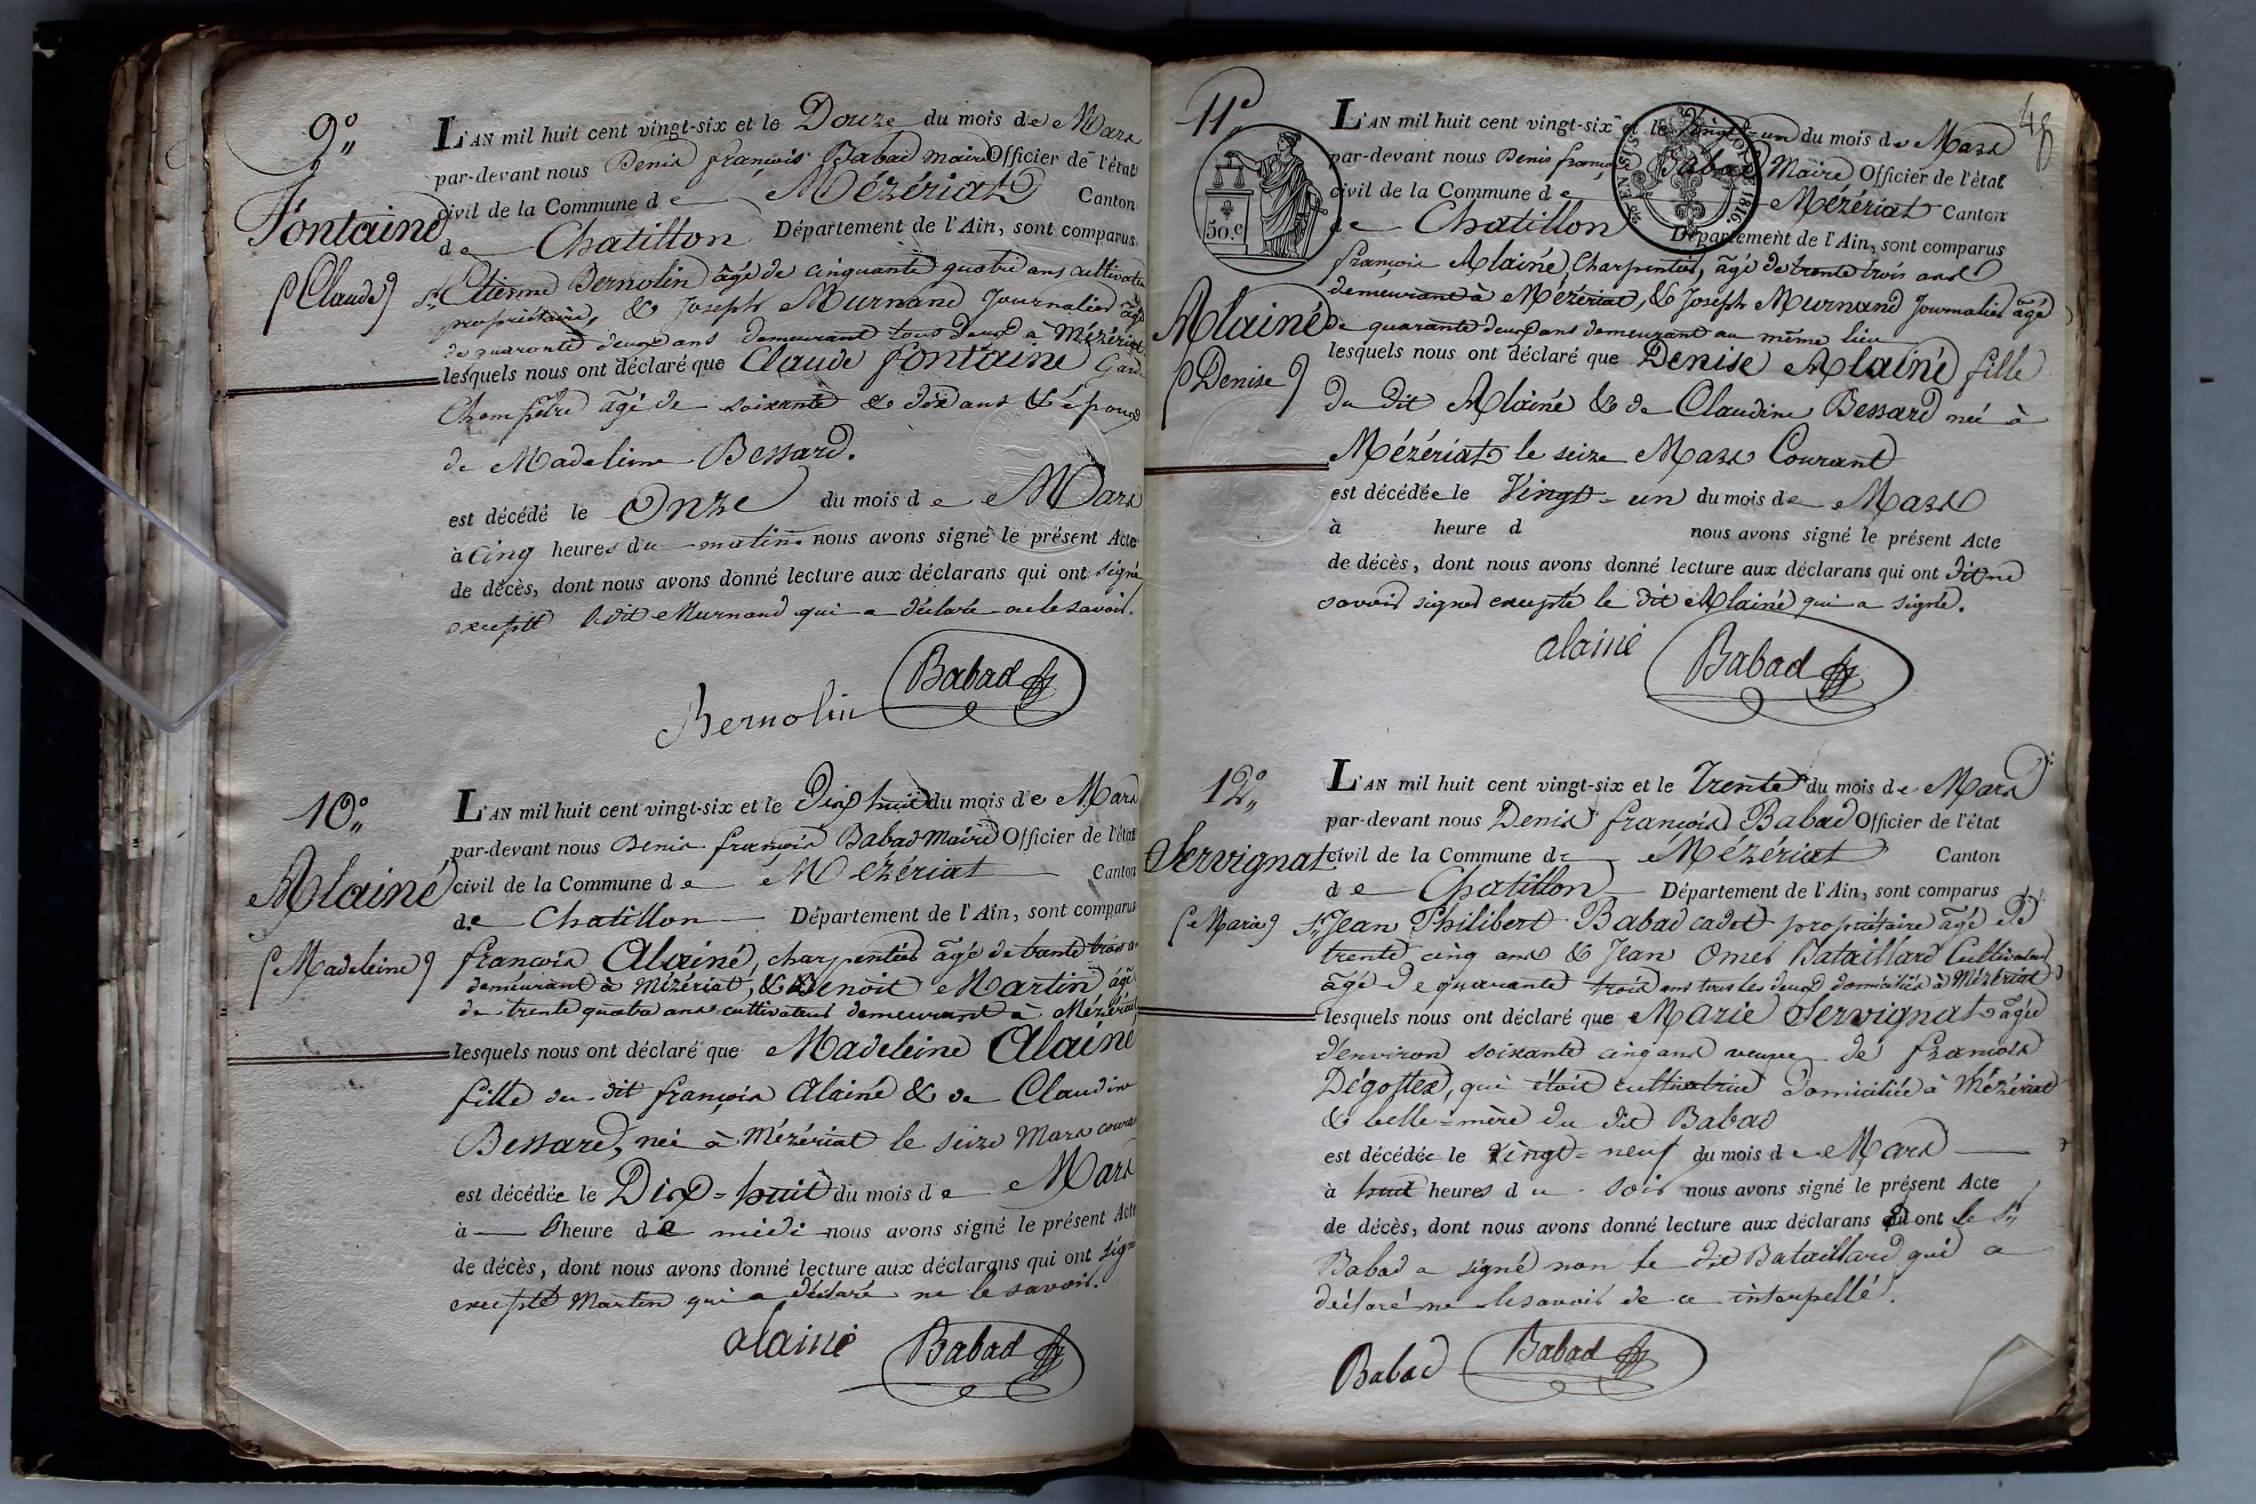 9°
Fontaine
(Claude)
L'AN mil huit cent vingt-six et le Douze du mois de Mars
par-devant nous Denis françois Babad maire Officier de l'état
civil de la Commune de Mézériat Canton
de Chatillon Département de l'Ain, sont comparus
Sr Etienne Bernolin âgé de cinquante quatre ans cultivateur
propriétaire, & Joseph Murnand Journalier âgé
de quarante deux ans demeurant tous deux à Mézériat
lesquels nous ont déclaré que Claude fontaine Garde
Champêtre âgé de soixante & dix ans & époux
de Madeleine Bessard.
est décédé le Onze du mois de Mars
à Cinq heures du matin nous avons signé le présent Acte
de décès, dont nous avons donné lecture aux déclarans qui ont signé
excepté ledit Murnand qui a déclaré ne le savoir.
Bernolin Babad
10°
Alainé
(Madeleine)
L'AN mil huit cent vingt-six et le Dix huit du mois de Mars
par-devant nous Denis françois Babad Maire Officier de l'état
civil de la Commune de Mézériat Canton
de Chatillon Département de l'Ain, sont comparus
francois Alainé, charpentier âgé de trente trois a
demeurant à Mézériat, & Benoit Martin âgé
de trente quatre ans cultivateur demeurant à Mézériat
lesquels nous ont déclaré que Madeleine Alainé
fille du dit françois Alainé & de Claudine
Bessard, née à Mézériat le seize Mars courant
est décédée le Dix-huit du mois de Mars
à heure de midi nous avons signé le présent Acte
de décès, dont nous avons donné lecture aux déclarans qui ont signé
excepté Martin qui a déclaré ne le savoir.
alainé Babad
48
11°
50.c
1816.
Alainé
(Denise)
L'AN mil huit cent vingt-six et le vingt-un du mois de Mars
par-devant nous Denis françois Babad Maire Officier de l'état
civil de la Commune de Mézériat Canton
de Chatillon Département de l'Ain, sont comparus
françois Alainé, Charpentier, âgé de trente trois ans
demeurant à Mézériat, & Joseph Murnand Journalier âgé
de quarante deux ans demeurant au même lieu
lesquels nous ont déclaré que Denise Alainé fille
du dit Alainé & de Claudine Bessard née à
Mézériat le seize Mars Courant
est décédée le Vingt-un du mois de Mars
à heure d nous avons signé le présent Acte
de décès, dont nous avons donné lecture aux déclarans qui ont dit ne
savoir signer excepté le dit Alainé qui a signé.
alainé Babad
12°
Servignat
(Marie)
L'AN mil huit cent vingt-six et le Trente du mois de Mars
par-devant nous Denis françois Babad Officier de l'état
civil de la Commune de Mézériat Canton
de Chatillon Département de l'Ain, sont comparus
Sr Jean Philibert Babad cadet propriétaire âgé de
trente cinq ans & Jean Omer Bataillard Cultivateur
âgé de quarante trois ans tous les deux domiciliés à Mézériat
lesquels nous ont déclaré que Marie Servignat âgée
d'environ soixante cinq ans veuve de françois
Dégottex, qui étoit cultivatrice domiciliée à Mézériat
& belle-mère du dit Babad
est décédée le vingt-neuf du mois de Mars
à huit heures du soir nous avons signé le présent Acte
de décès, dont nous avons donné lecture aux déclarans dont le Sr
Babad a signé non le dit Bataillard qui a
déclaré ne le savoir de ce interpellé.
Babad Babad